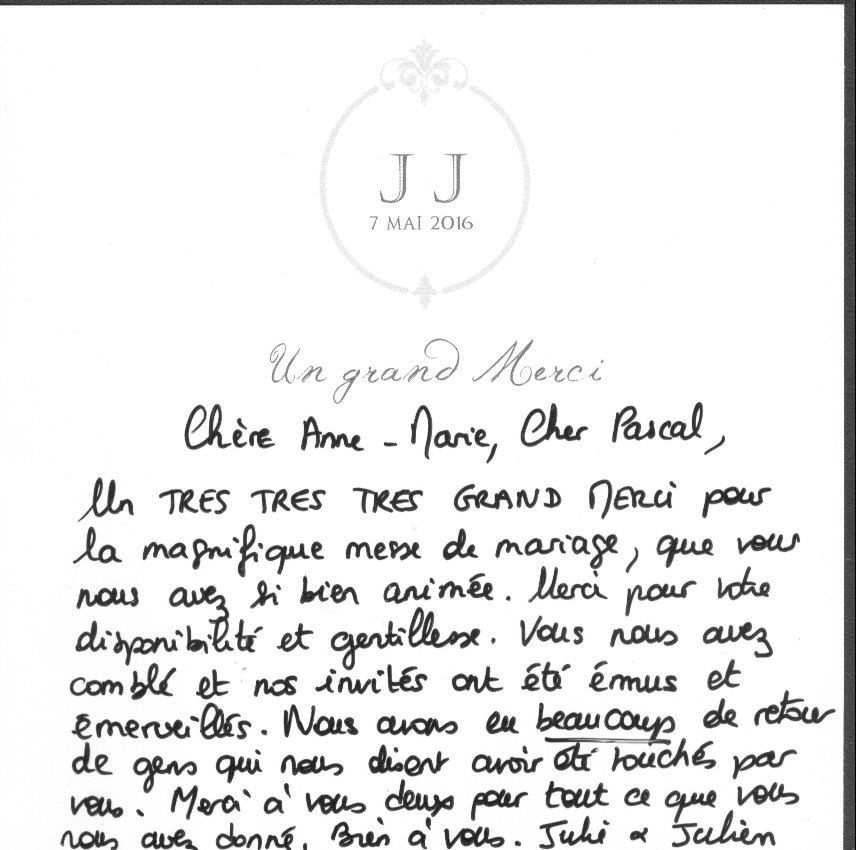 J J
7 MAI 2016
Un grand Merci
Chère Anne-Marie, Cher Pascal,
Un TRES TRES TRES GRAND MERCi pour
la magnifique messe de mariage, que vous
nous avez si bien animée. Merci pour votre
disponibilité et gentillesse. Vous nous avez
comblé et nos invités ont été émus et
émerveillés. Nous avons eu beaucoup de retour
de gens qui nous disent avoir été touchés par
vous. Merci à vous deux pour tout ce que vous
nous avez donné. Bien à vous. Julie & Julien